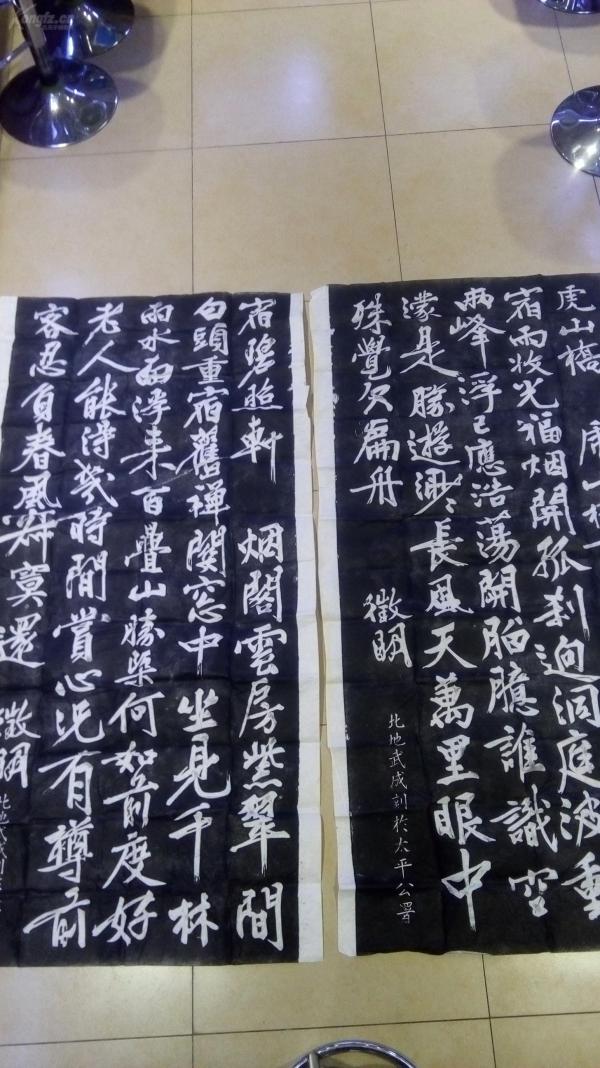 虎山橋 虎山橋
宿雨收光福烟開孤刹迥洞庭波動
兩峰浮已應浩蕩開胸臆誰識空
濛是勝遊渺渺長風天萬里眼中
殊覺欠扁舟
徵明
北地武成訓於太平公署
宿碧照軒 烟閣雲房紫翠間
白頭重宿舊禅関窓中坐見千林
雨水面浮来百疊山勝槩何如前度好
老人能得幾時閒賞心況有罇前
客忍負春風寂寞還 徵明
北地武成訓